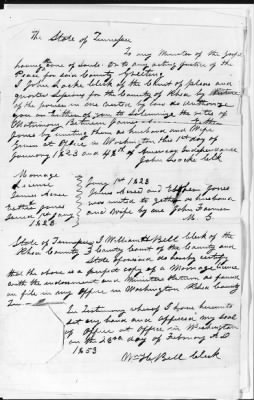 The State of Tennessee
To any Minister of the Gospel
having care of Souls Or to any acting Justice of the
Peace for said County Greeting
I John Locke Clerk of the Court of pleas and
quarter Sessions for the County of Rhea by Virtue
of the power in me vested by law do Authorize
you or either of you to Solemnize the rites of
Matrimony Between James and
Jones by uniting them as husband and Wife
Given at Office in Washington this 1st day of
January 1823 and 48th of American Independence
John Locke Clk
Marriage
License
James
to
Esther Jones
Issued 1st Jany
1823
Jany 1st 1823
James and Esther Jones
was united to gether as husband
and Wife by me John Farmer
M. G
State of Tennessee I William H Bell Clerk of the
Rhea County County Court of the County and
State aforesaid do hereby certify
that the above is a perfect copy of a Marriage licence
with the indorsement and Ministers return as found
on file in my Office in Washington Rhea County
In Testimony whereof I have hereunto
set my hand and affixed my seal
of Office at Office in Washington
on the day of February A.D
1853
Wm H. Bell Clerk